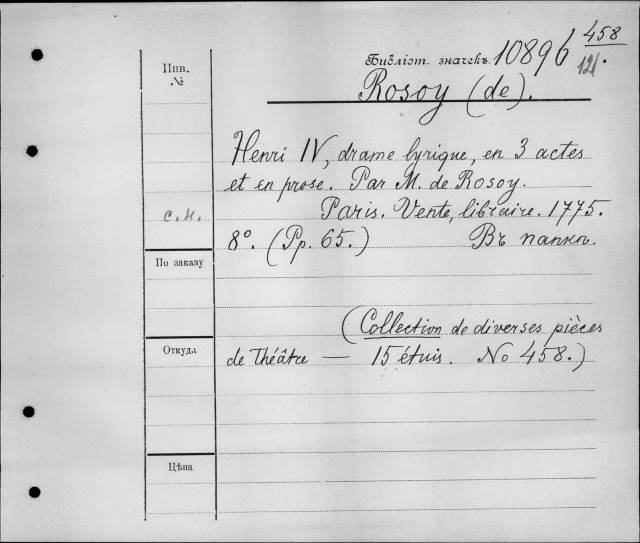 458
Инв. № Библіот. значекъ. 10896 12.
Rosoy (de).
Henri IV, drame lyrique, en 3 actes
et en prose. Par M. de Rosoy.
с.н. Paris. Vente, libraire. 1775.
8°. (Pp. 65.) Въ папкѣ.
По заказу
(Collection de diverses pièces
Откуда de théâtre — 15 étuis. No 458.)
Цѣна